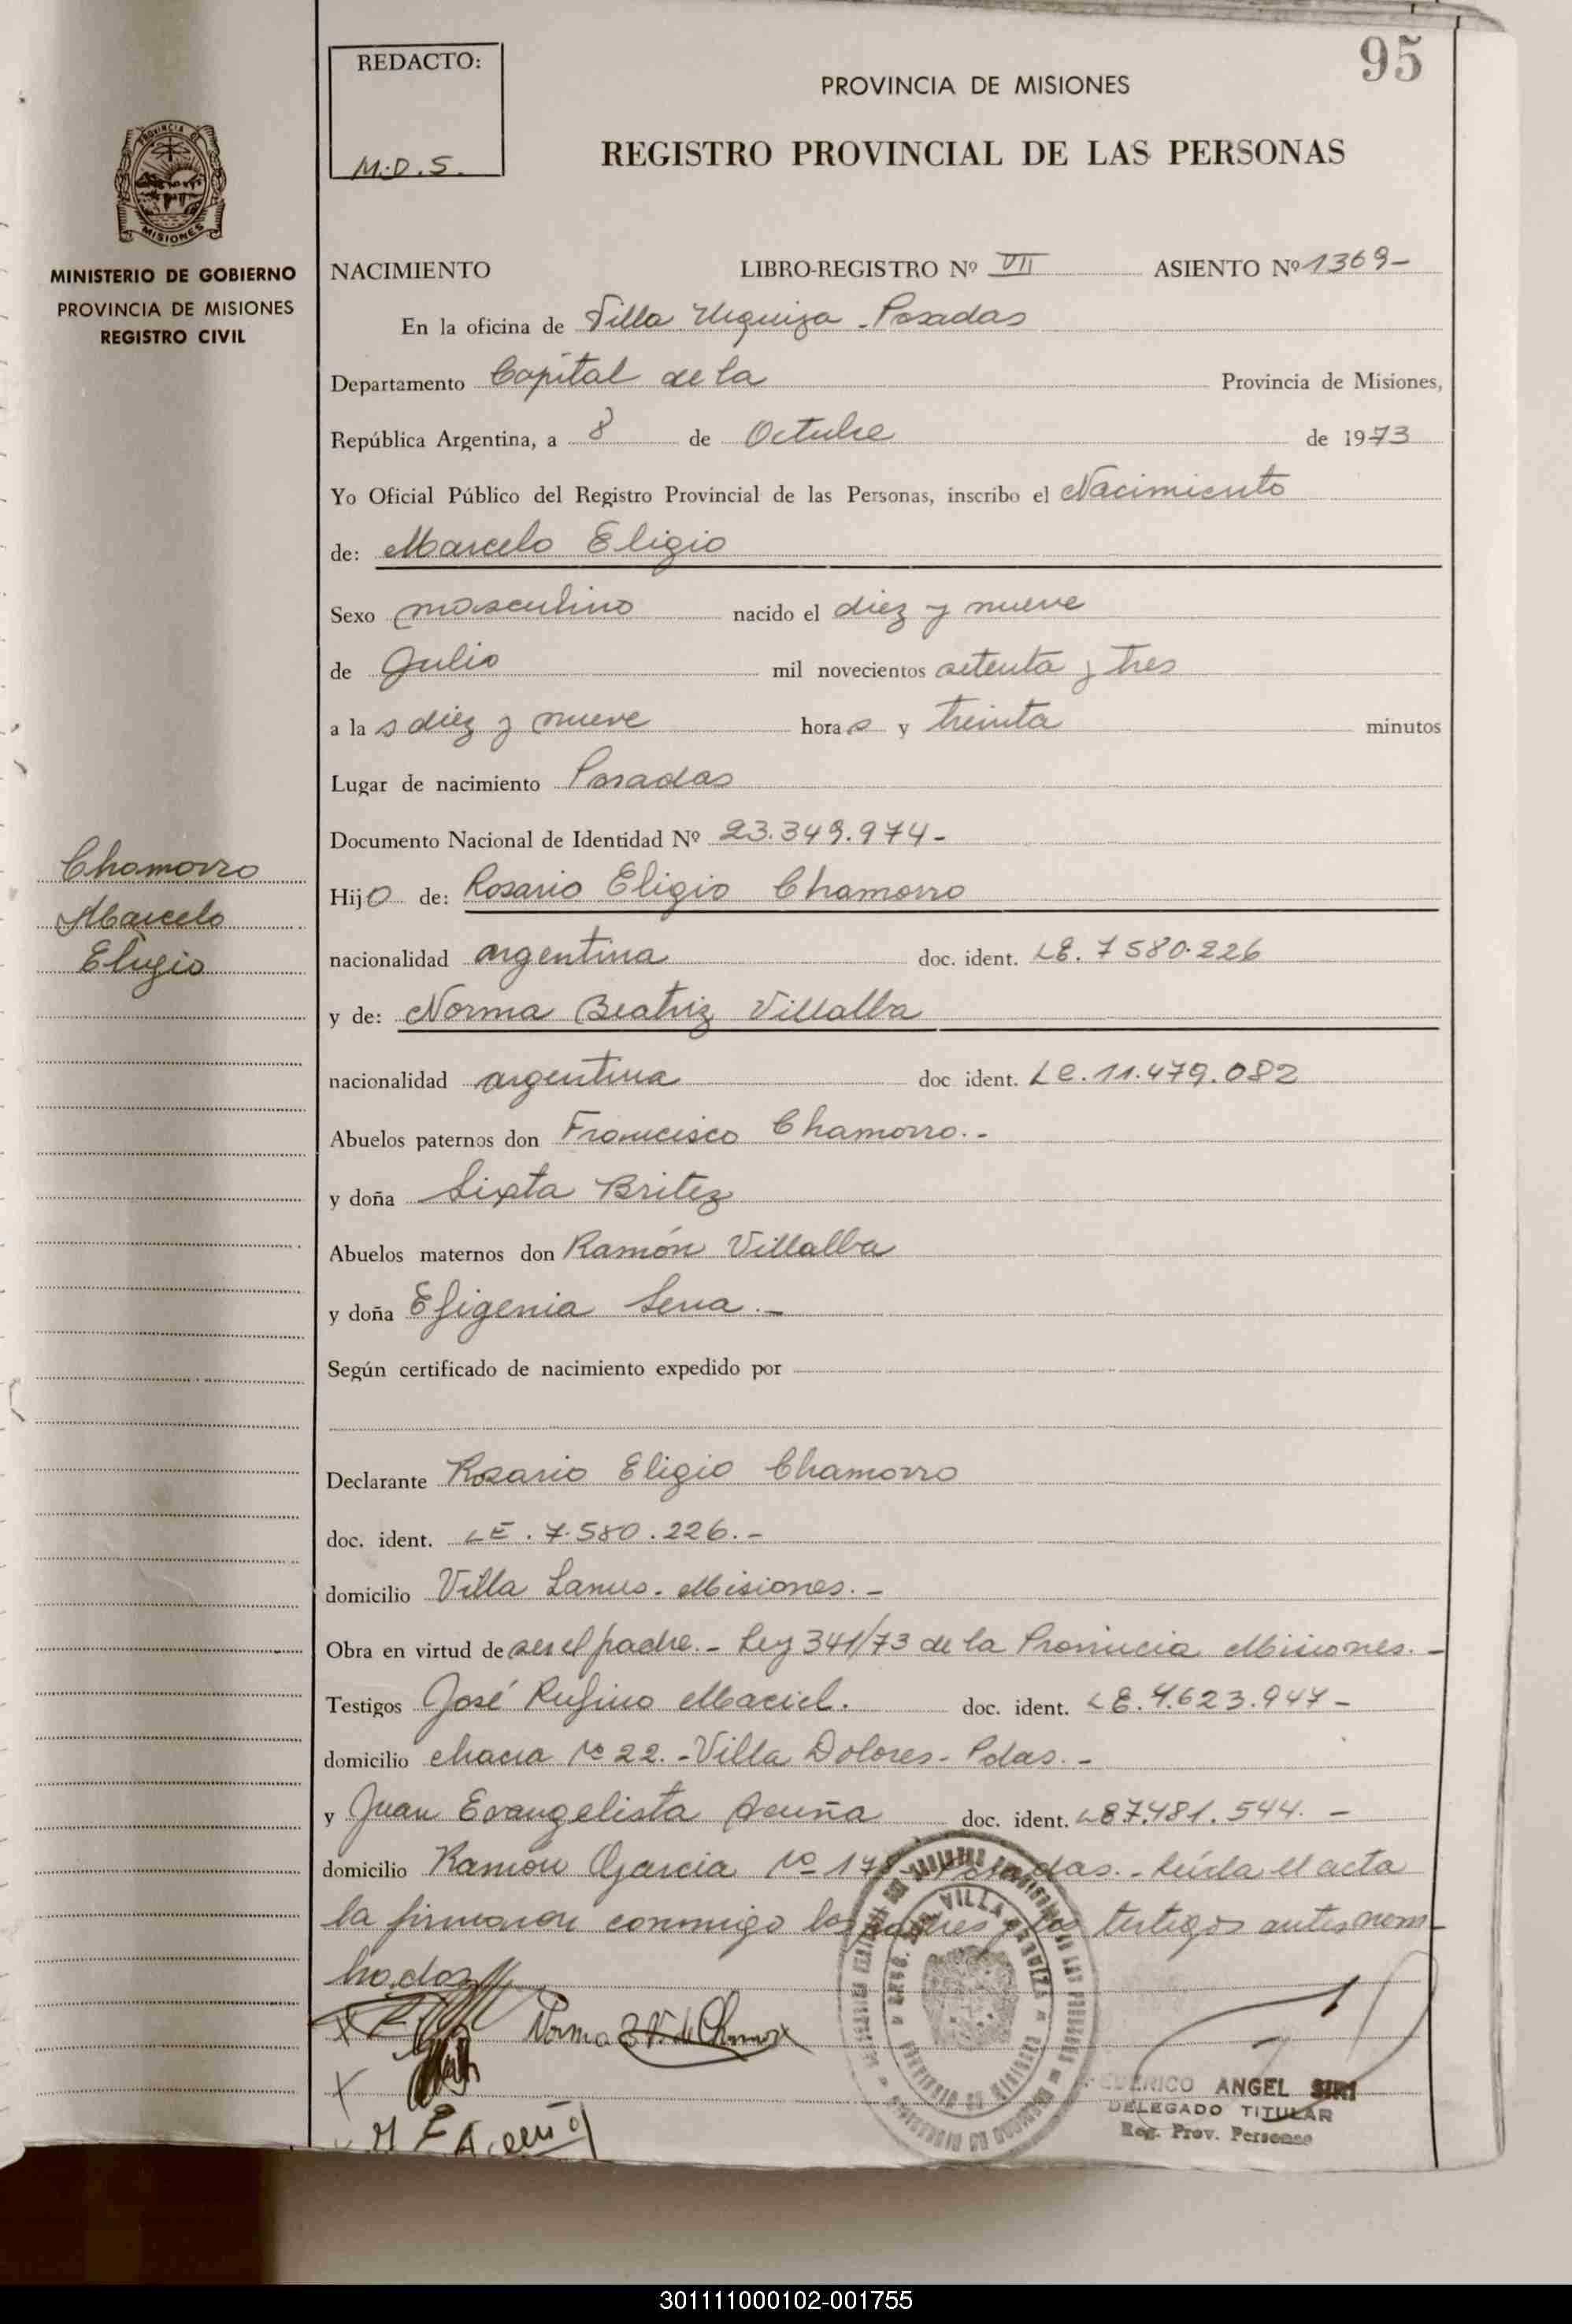 95
REDACTO:
M.D.S.
PROVINCIA DE MISIONES
REGISTRO PROVINCIAL DE LAS PERSONAS
PROVINCIA DE
MISIONES
MINISTERIO DE GOBIERNO
PROVINCIA DE MISIONES
REGISTRO CIVIL
NACIMIENTO LIBRO-REGISTRO Nº VII ASIENTO Nº 1369-
En la oficina de Villa Urquiza - Posadas
Departamento Capital de la Provincia de Misiones,
República Argentina, a 8 de Octubre de 1973
Yo Oficial Público del Registro Provincial de las Personas, inscribo el Nacimiento
de: Marcelo Eligio
Sexo masculino nacido el diez y nueve
de Julio mil novecientos setenta y tres
a la s diez y nueve hora s y treinta minutos
Lugar de nacimiento Posadas
Documento Nacional de Identidad Nº 23.349.974-
Chamorro
Marcelo
Eligio
Hijo de: Rosario Eligio Chamorro
nacionalidad argentina doc. ident. LE. 7580.226
y de: Norma Beatriz Villalba
nacionalidad argentina doc ident. LC. 11.479.082
Abuelos paternos don Francisco Chamorro.-
y doña Sixta Britez
Abuelos maternos don Ramón Villalba
y doña Efigenia Sena.-
Según certificado de nacimiento expedido por
Declarante Rosario Eligio Chamorro
doc. ident. LE. 7.580.226.-
domicilio Villa Lanus. Misiones.-
Obra en virtud de ser el padre.- Ley 341/73 de la Provincia Misiones.-
Testigos José Rufino Maciel. doc. ident. LE. 4.623.947-
domicilio chacra Nº 22.-Villa Dolores- Pdas.-
y Juan Evangelista Acuña doc. ident. LE 7.481.544.-
domicilio Ramón Garcia Nº 178- Posadas.- Leída el acta
la firmaron conmigo los padres y los testigos antes nom-
brados
Norma B V. de Chamorro
VILLA URQUIZA
ANGEL SIRI
DELEGADO TITULAR
Reg. Prov. Personas
301111000102-001755